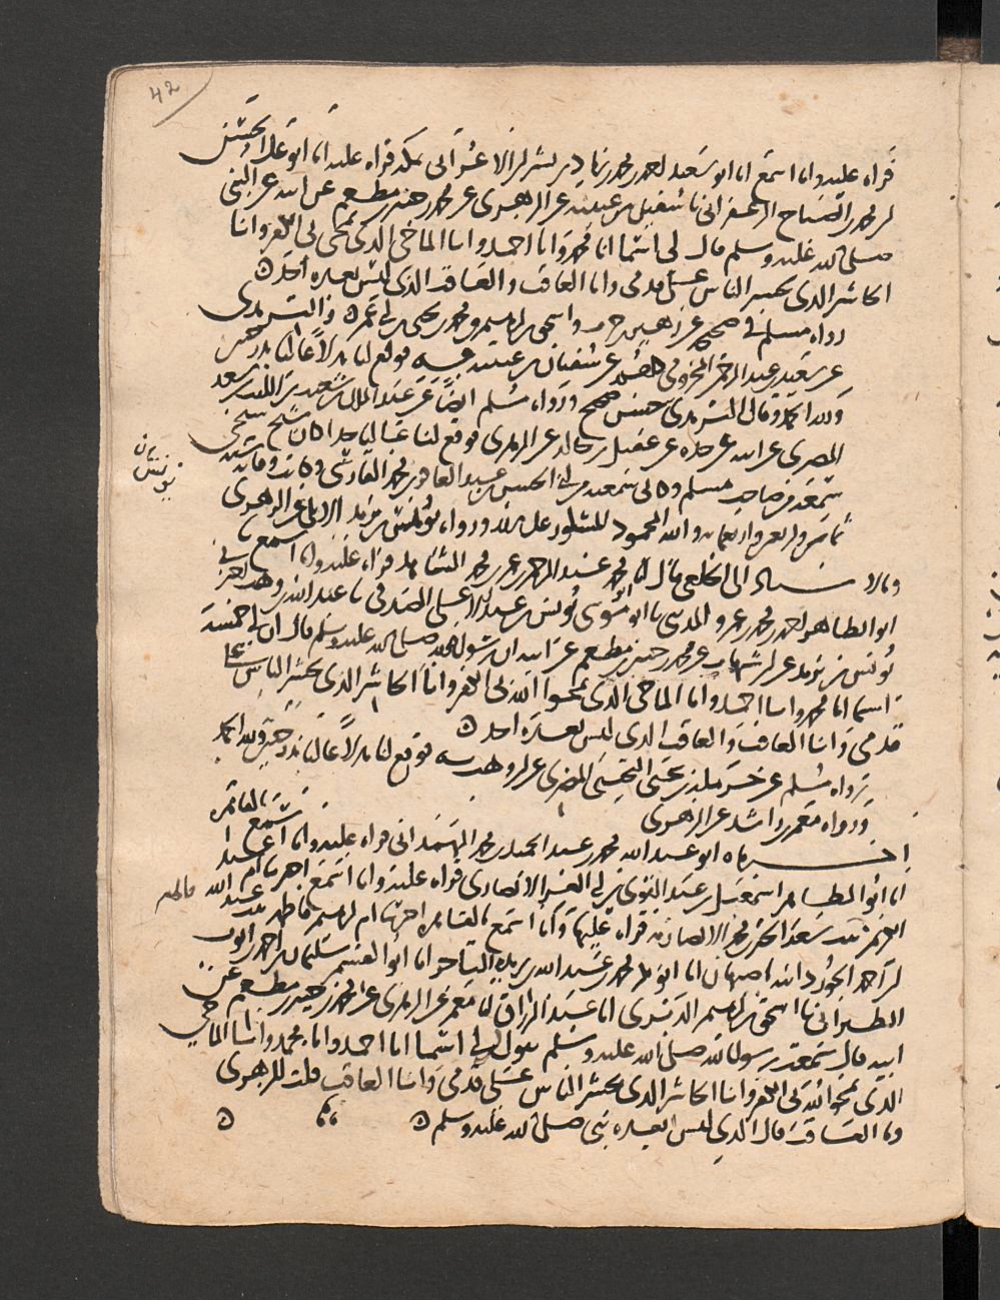 42
قراه عليه وانا اسمع انا ابو سعيد احمد بن محمد بن زياد بن بشر ابن الاعرابي بمكه قراه عليه انا ابو علي الحسن
بن محمد بن الصباح الزعفراني نا سفيان بن عيينه عن الزهري عن محمد بن جبير بن مطعم عن ابيه عن النبي
صلى الله عليه وسلم قال لي اسما انا محمد وانا احمد وانا الماحي الذي يمحى بي الكفر وانا
الحاشر الذي يحشر الناس على قدمي وانا العاقب والعاقب الذي ليس بعده احد
رواه مسلم في صحيحه عن زهير بن حرب واسحق بن ابرهيم ومحمد بن يحيى بن ابي عمر والترمذي
عن سعيد بن عبد الرحمن المخزومي كلهم عن سفيان بن عيينه فوقع لنا بدلا عاليا
ولله الحمد وقال الترمذي حسن صحيح ورواه مسلم ايضا عن عبد الملك بن شعيب بن الليث بن سعد
المصري عن ابيه عن جده عن عقيل بن خالد عن الزهري فوقع لنا عاليا جدا كان شيخ شيخي
سمعه من صاحب مسلم وكاني سمعته من ابي الحسين عبد الغافر بن محمد الفارسي وكانت وفاته سنه
ثمان واربعين واربعمايه ولله المحمود المشكور على ورواه يونس بن يزيد الايلي عن الزهري
يونس
وبالاسناد الى الخلعي قال انا محمد عبد الرحمن بن عمر بن محمد الشاهد قراه عليه وانا اسمع نا
ابو الطاهر احمد بن محمد بن عمرو المديني نا ابو موسى يونس بن عبد الاعلى الصدفي نا عبد الله بن وهب اخبرني
يونس بن يزيد عن ابن شهاب عن محمد بن جبير بن مطعم عن ابيه ان رسول الله صلى الله عليه وسلم قال ان لي خمسه
اسما انا محمد وانا احمد وانا الماحي الذي يمحوا الله بي الكفر وانا الحاشر الذي يحشر الناس على
قدمي وانا العاقب والعاقب الذي ليس بعده احد
رواه مسلم عن حرمله بن يحيى التجيبي المصري عن ابن وهب فوقع لنا بدلا عاليا ولله الحمد
ورواه معمر بن راشد عن الزهري
اخبرناه ابو عبد الله محمد بن عبد الحميد بن محمد الهمداني قراه عليه وانا اسمع بالقاهره
انا ابو الطاهر اسمعيل بن عبد القوي بن ابي العز الانصاري قراه عليه وانا اسمع اخبرتنا ام عبد
الكريم بنت سعد الخير بن محمد الانصاريه قراه عليها وانا اسمع بالقاهره اخبرتنا ام ابرهيم فاطمه بنت عبد الله قالت
بن احمد الجوزدانيه اصبهان انا ابو بكر محمد بن عبد الله بن ريذه التاجر انا ابو القسم سليمان بن احمد بن ايوب
الطبراني نا اسحق بن ابرهيم الدبري انا عبد الرزاق انا معمر عن الزهري عن محمد بن جبير بن مطعم عن
ابيه قال سمعت رسول الله صلى الله عليه وسلم يقول ان لي اسما انا احمد وانا محمد وانا الماحي
الذي يمحو الله بي الكفر وانا الحاشر الذي يحشر الناس على قدمي وانا العاقب قلت للزهري
وما العاقب قال الذي ليس بعده نبي صلى الله عليه وسلم